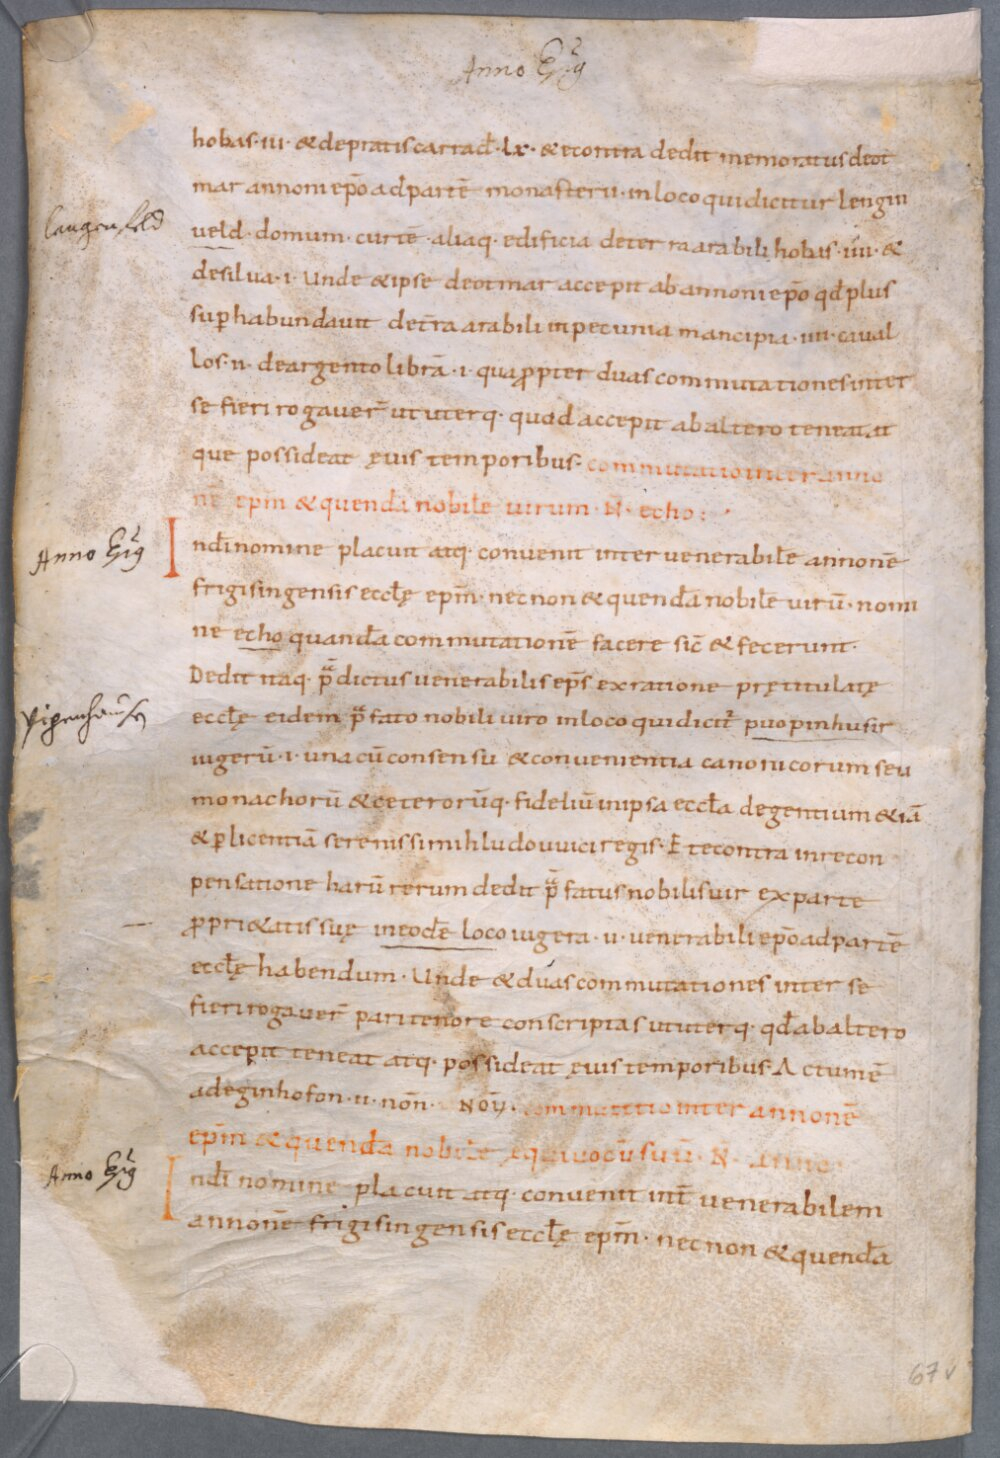 Anno Ep̄s
hobas·iii· &depratis carrad̄·lx· &econtra dedit memoratus deot
mar annoni ep̄o ad partē monasteriū· in loco qui dicitur lengin
langenfeld
ueld· domum· curtē· aliaq· edificia de terra arabili hobas·iiii· &
de silua·i· Unde &ipse deotmar accepit ab annoni ep̄o qd̄ plus
sup habundauit de tr̄a arabili in pecunia mancipia·iiii·caual
los·ii· de argento librā·i· quapropter duas commutationes inter
se fieri rogauer̄ ut uterq· quod accepit ab altero teneat at
que possideat ęuis temporibus· commutatio inter anno
nē ep̄m &quendā nobilē uirum·N̄· echo:
Anno
In dī nomine placuit atq· conuenit inter uenerabilē annonē
frigisingensis eccłę ep̄m· nec non &quendā nobilē uirū· nomi
ne echo quandā commutationē facere sic̄ &fecerunt·
Dedit itaq· p̄dictus uenerabilis ep̄s ex ratione prętitulatę
eccłę eidem p̄fato nobili uiro in loco qui dicit̄ puopinhusir
iugerū·i· una cū consensu &conuenientia canonicorum seu
monachorū &ceterorūq· fideliū in ipsa eccła degentium &iā
&p licentiā serenissimi hludouuici regis· Et econtra in recon
pensatione harū rerum dedit p̄fatus nobilis uir ex parte
propri&atis suę in eodē loco iugera·ii· uenerabili ep̄o ad partē
eccłę habendum· Unde &duas commutationes inter se
fieri rogauer̄ pari tenore conscriptas ut uterq· qd̄ ab altero
accepit teneat atq· possideat ęuis temporibus· Actum ē
ad eginhofon·ii·non̄· Nov̄· commutatio inter annonē
ep̄m &quendā nobilē ęquiuocū suū·N̄· anno
Anno
In dī nomine placuit atq· conuenit int̄ uenerabilem
annonē frigisingensis eccłę ep̄m· nec non &quendā
67v